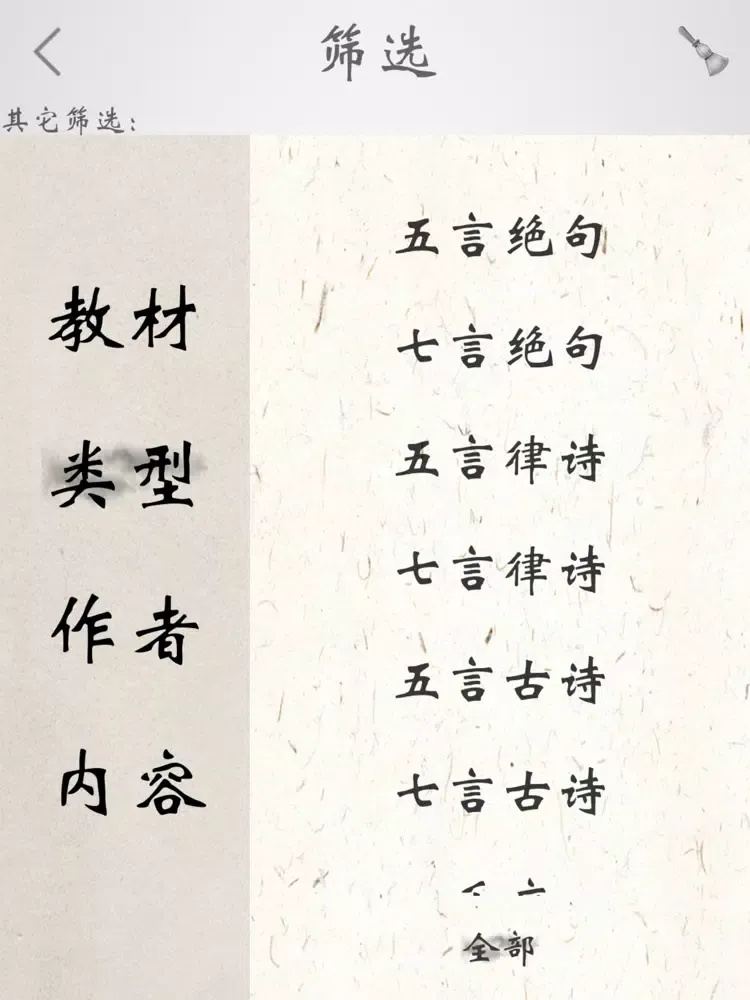 筛选
其它筛选:
教材
类型
作者
内容
五言绝句
七言绝句
五言律诗
七言律诗
五言古诗
七言古诗
全部